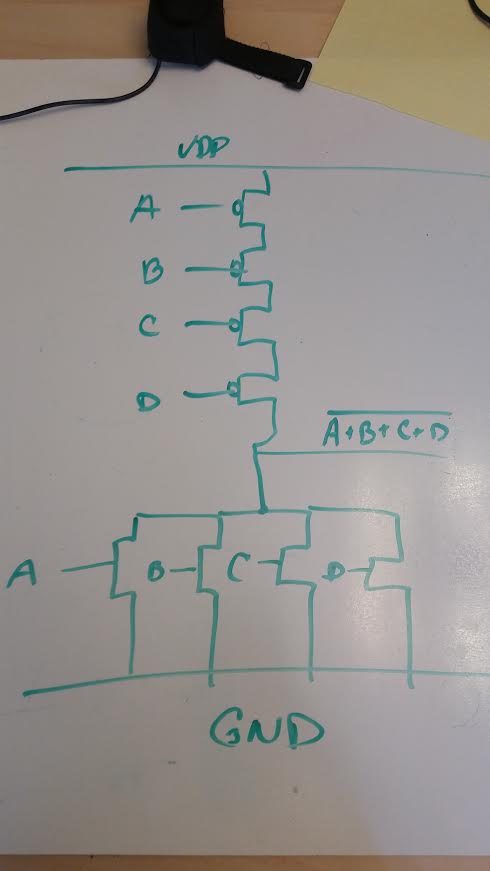 VDD
A
B
C
D
A+B+C+D
A B C D
GND